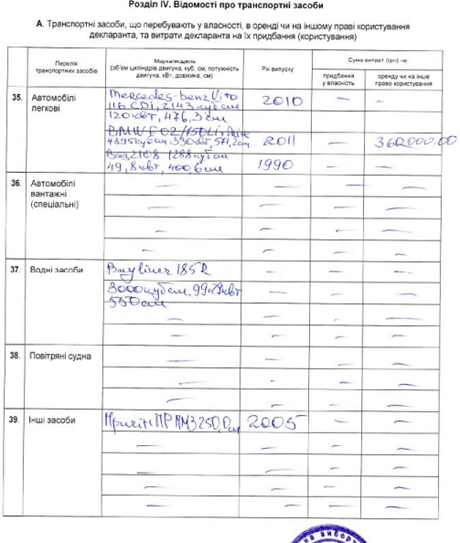 Розділ IV. Відомості про транспортні засоби
А. Транспортні засоби, що перебувають у власності, в оренді чи на іншому праві користування
декларанта, та витрати декларанта на їх придбання (користування)
Перелік транспортних засобів
Марка/модель (об'єм циліндрів двигуна, куб. см, потужність двигуна, кВт, довжина, см)
Рік випуску
Сума витрат (грн) на
придбання у власність
оренду чи на інше право користування
35. Автомобілі легкові
Mercedes-benz Vito 2010 – –
116 CDi, 2143 куб см
120 квт, 476,3 см
BMW F02/750Li xDrive 2011 – 360000.00
4395 куб см, 330 квт, 507,2 см
Ваз 2108 1288 куб см 1990 – –
49,8 квт, 400,6 см
36. Автомобілі вантажні (спеціальні)
37. Водні засоби
Bayliner 185 R
3000 куб см, 99,29 квт
550 см
38. Повітряні судна
39. Інші засоби
Причіп ПР ММЗ 2005 – –